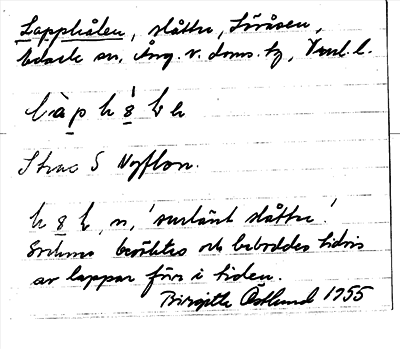 Lapphålen, slåttr, Löråsen,
Edsele sn, Ång. v. doms. tg, Vnrl. l.
làp h 8 l n
Strax S Nyflon.
h 8 l, n, 'surlänt slåttr.'
besöktes och beboddes tidvis
av lappar förr i tiden.
Birgitta Östlund 1955